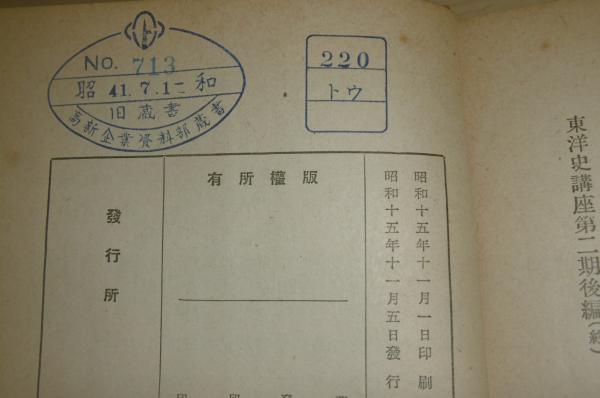 No. 713
昭 41.7.1 和
旧蔵書
高新企業資料部蔵書
220
トウ
東洋史講座第二期後編(終)
昭和十五年十一月一日印刷
昭和十五年十一月五日發行
版權所有
發行所